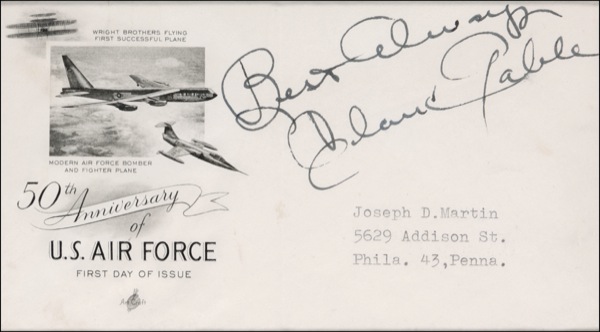 WRIGHT BROTHERS FLYING
FIRST SUCCESSFUL PLANE
Best Always
Clark Gable
MODERN AIR FORCE BOMBER
AND FIGHTER PLANE
50th Anniversary
of
U.S. AIR FORCE
FIRST DAY OF ISSUE
Art Craft
Joseph D.Martin
5629 Addison St.
Phila. 43,Penna.